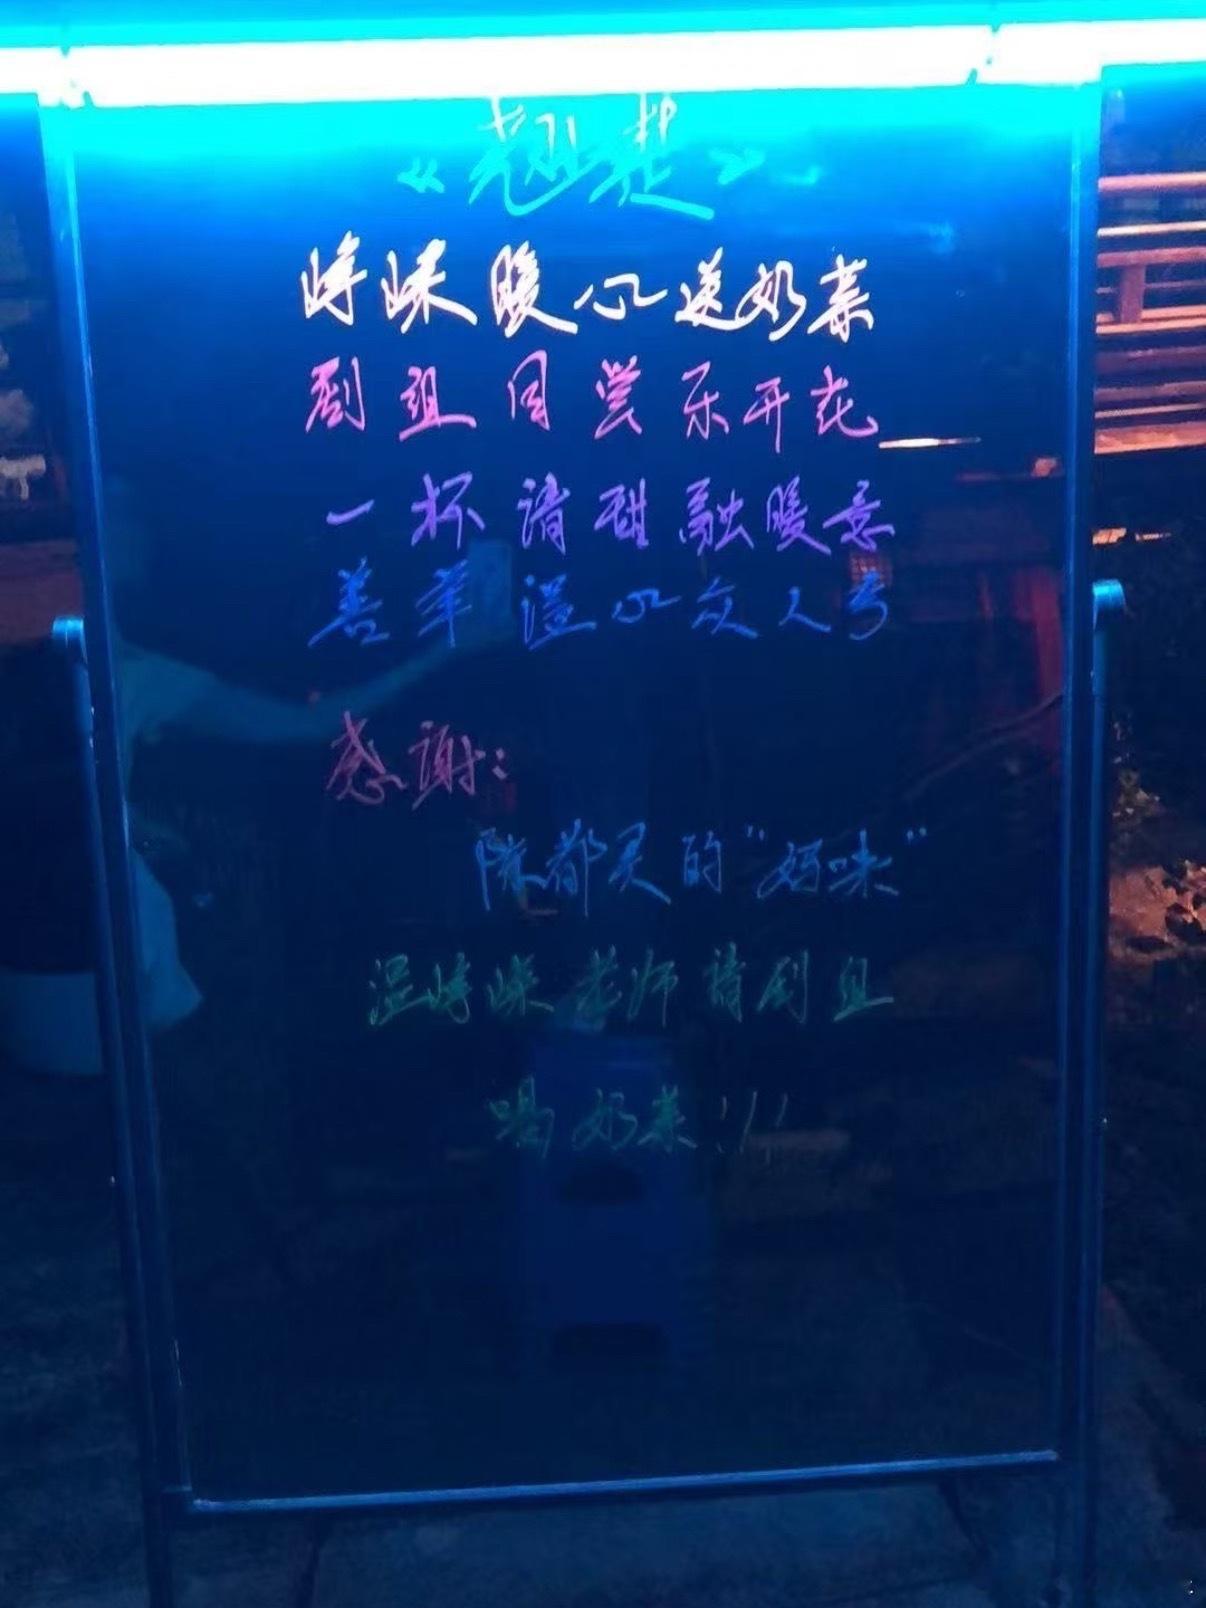 《翘楚》
峥嵘暖心送奶茶
剧组同尝乐开花
一杯清甜融暖意
善举温心众人夸
感谢:
陈都灵的"妈咪"
温峥嵘老师请剧组
喝奶茶!!!